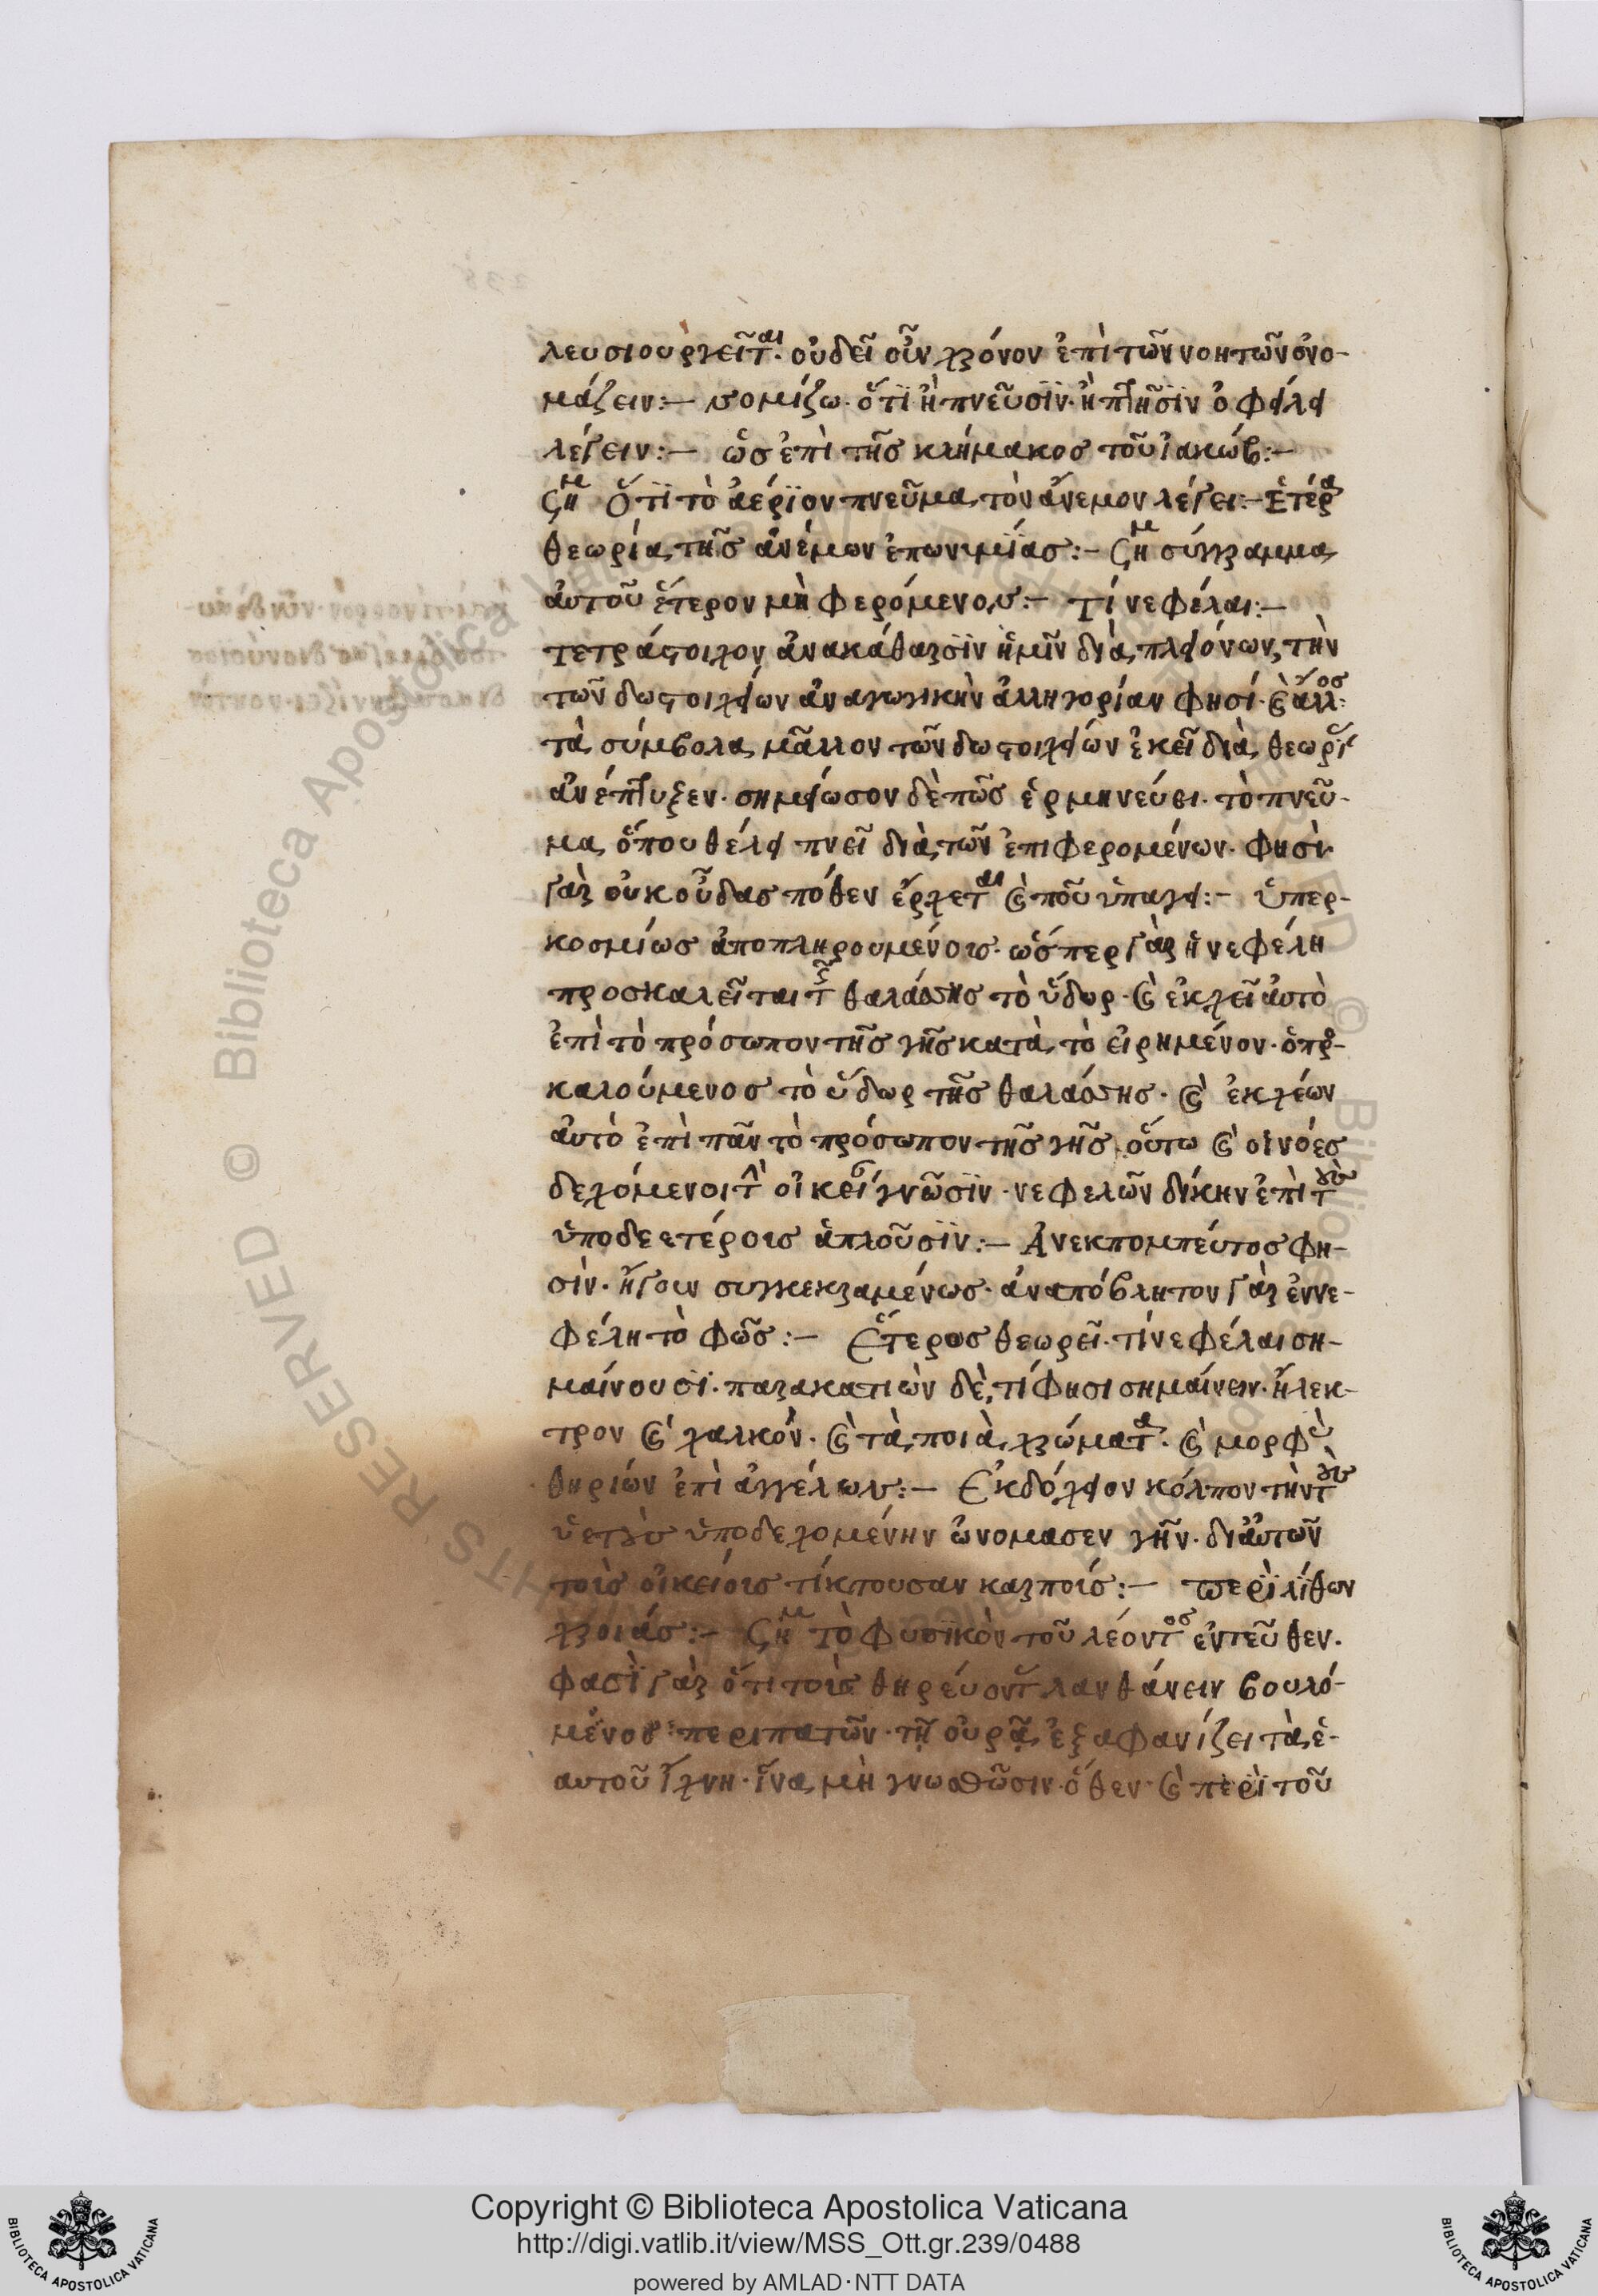 λευσιουργεῖται· οὐ δεῖ οὖν χρόνον ἐπὶ τῶν νοητῶν ὀνο-
μάζειν:— νομίζω· ὅτι ἢ πνεῦσιν· ἢ πτῆσιν ὀφείλει
λέγειν:— ὡς ἐπὶ τῆς κλήμακος τοῦ ἰακώβ:—
ση^μ Ὅτι τὸ ἀέριον πνεῦμα, τὸν ἄνεμον λέγει:— Ἑτέρα
θεωρία, τῆς ἀνέμων ἐπωνιμίας:— ση^μ σύγγραμμα
αὐτοῦ ἕτερον μὴ φερόμενον:— Τί νεφέλαι:—
τετράστοιχον ἀνακάθαρσιν ἡμῖν διὰ πλειόνων, τὴν
τῶν δωστοιχείων ἀναγωγικὴν ἀλληγορίαν φησί· καὶ ἄλλος·
τὰ σύμβολα μᾶλλον τῶν δωστοιχείων ἐκεῖ διὰ θεωρί
ἀνέπτυξεν· σημείωσον δὲ πῶς ἑρμηνεύει· τὸ πνεῦ-
μα ὅπου θέλει πνεῖ διὰ τῶν ἐπιφερομένων· φησὶν
γὰρ οὐκ οἶδας πόθεν ἔρχεται καὶ ποῦ ὑπάγει:— ὑπερ-
κοσμίως ἀποπληρουμένοις· ὥσπερ γὰρ ἡ νεφέλη
προσκαλεῖται τῆς θαλάσσης τὸ ὕδωρ· καὶ ἐκχεῖ αὐτὸ
ἐπὶ τὸ πρόσωπον τῆς γῆς κατὰ τὸ εἰρημένον· ὁ προ-
καλούμενος τὸ ὕδωρ τῆς θαλάσσης· καὶ ἐκχέων
αὐτὸ ἐπὶ πᾶν τὸ πρόσωπον τῆς γῆς· οὕτω καὶ οἱ νόες
δεχόμενοι τὴν οἰκείαν γνῶσιν· νεφελῶν δίκην ἐπὶ τοὺς
ὑποδεετέροις ἁπλοῦσιν:— Ἀνεκπομπεύτος φη-
σίν· ἤγουν συγκεκραμένως· ἀναπόβλητον γὰρ ἐν νε-
φέλη τὸ φῶς:— Ἕτερος θεωρεῖ· τί νεφέλαι ση-
μαίνουσι· παρακατιὼν δὲ, τί φησι σημαίνειν· ἤλεκ-
τρον καὶ χαλκόν· καὶ τὰ ποιὰ χρώματα· καὶ μορφὰς
θηρίων ἐπὶ ἀγγέλων:— Ἐκδόχειον κόλπον τὴν τοὺς
ὑετοὺς ὑποδεχομένην ὠνόμασεν γῆν· δι' αὐτῶν
τοῖς οἰκείοις τίκτουσαν καρποῖς:— Περὶ λίθων
χροιάς:— ση^μ τὸ φυσικὸν τοῦ λέοντος ἐντεῦθεν·
φασὶ γὰρ ὅτι τοὺς θηρεύοντ λανθάνειν βουλό-
μενος περιπατῶν· τῇ οὐρᾷ ἐξαφανίζει τὰ ἑ-
αυτοῦ ἴχνη· ἵνα μὴ γνωσθῶσιν· ὅθεν καὶ περὶ τοῦ
Copyright © Biblioteca Apostolica Vaticana
http://digi.vatlib.it/view/MSS_Ott.gr.239/0488
powered by AMLAD·NTT DATA